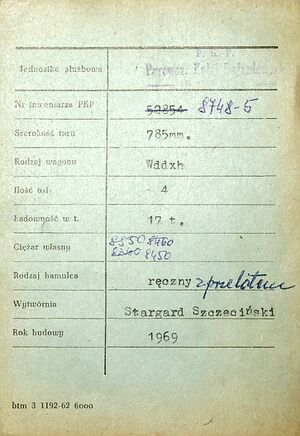 P. K. P.
Jednostka służbowa
Nr inwentarza PKP 52854 8748-5
Szerokość toru 785mm.
Rodzaj wagonu Wddxh
Ilość osi 4
Ładowność w t. 17 t.
8550 8460
Ciężar własny 8450
Rodzaj hamulca ręczny z przelotem
Wytwórnia Stargard Szczeciński
Rok budowy 1969
btm 3 1192-62 6000